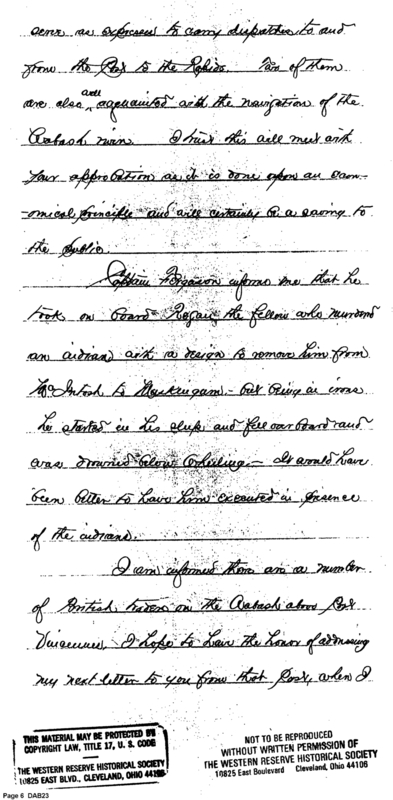 serve as expresses to carry dispatches to and
from the Post to the Rapids. Two of them
are also well acquainted with the navigation of the
Wabash river. I trust this will meet with
your approbation as it is done upon an econ-
-omical principle and will certainly be a saving to
the public.
Captain Ferguson informs me that he
took on board the fellow who murdered
an indian with a design to remove him from
McIntosh to Muskingum. - but being in irons
he started in his sleep and fell over board and
was drowned below Wheeling. - It would have
been better to have him executed in presence
of the indians.
I am informed there are a number
of British traders on the Wabash above Post
Vincennes, I hope to have the honor of addressing
my next letter to you from that Post, when I
THIS MATERIAL MAY BE PROTECTED BY
COPYRIGHT LAW, TITLE 17, U. S. CODE
THE WESTERN RESERVE HISTORICAL SOCIETY
10825 EAST BLVD., CLEVELAND, OHIO 44106
NOT TO BE REPRODUCED
WITHOUT WRITTEN PERMISSION OF
THE WESTERN RESERVE HISTORICAL SOCIETY
10825 East Boulevard Cleveland, Ohio 44106
Page 6 DAB23